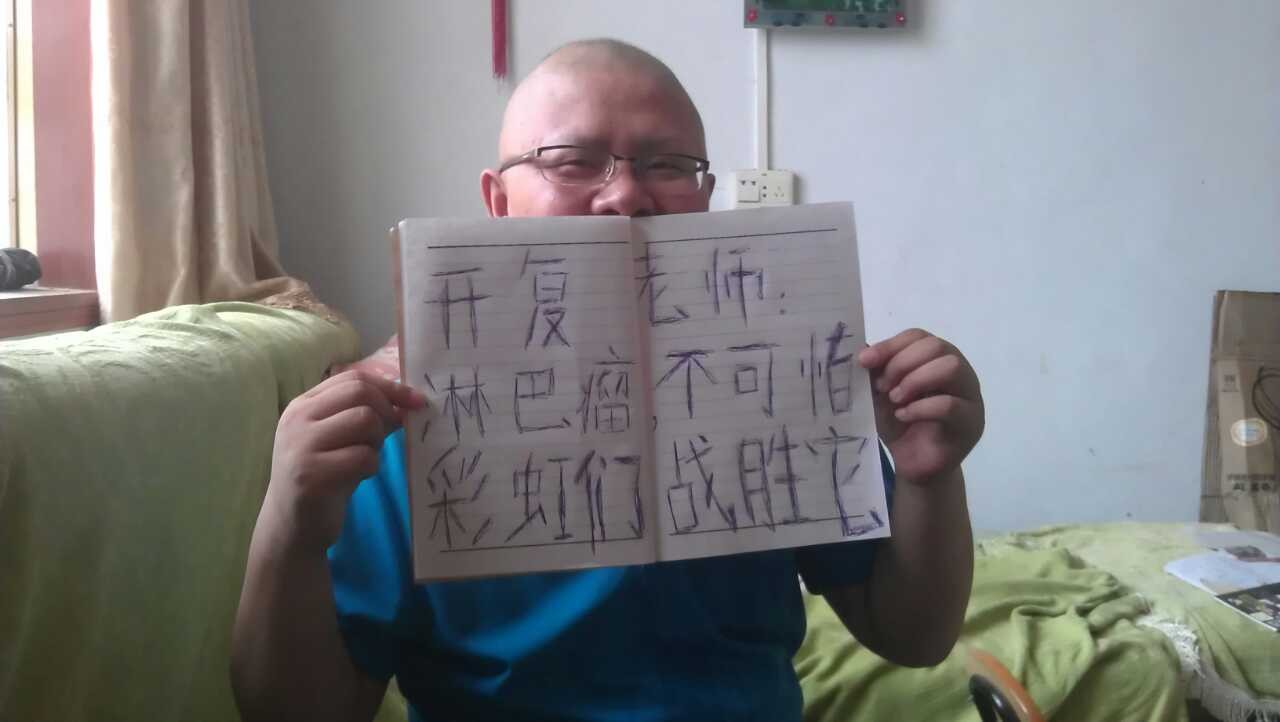 开复老师:
淋巴瘤,不可怕
彩虹们战胜它